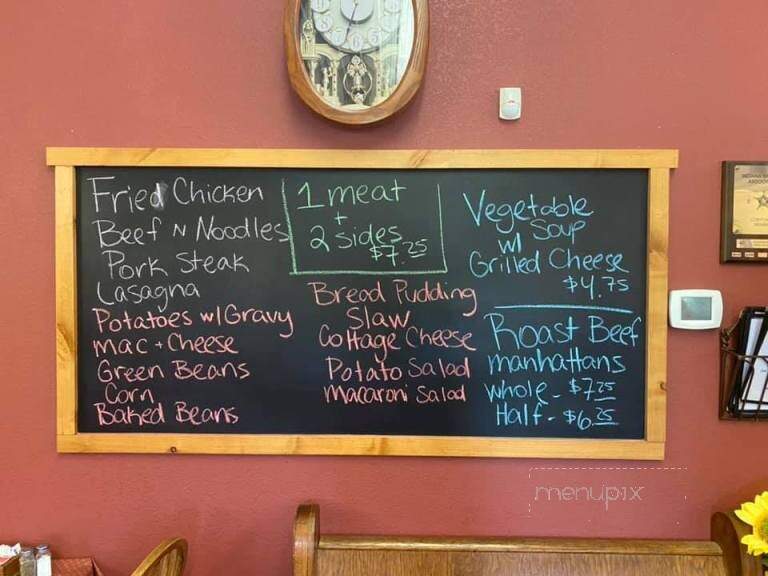 Fried Chicken
Beef N Noodles
Pork Steak
Lasagna
Potatoes w/Gravy
Mac + Cheese
Green Beans
Corn
Baked Beans
1 meat
+
2 sides
$7.25
Bread Pudding
Slaw
Cottage Cheese
Potato Salad
Macaroni Salad
Vegetable
Soup
w/
Grilled Cheese
$4.75
Roast Beef
manhattans
whole - $7.25
Half - $6.25
menupix